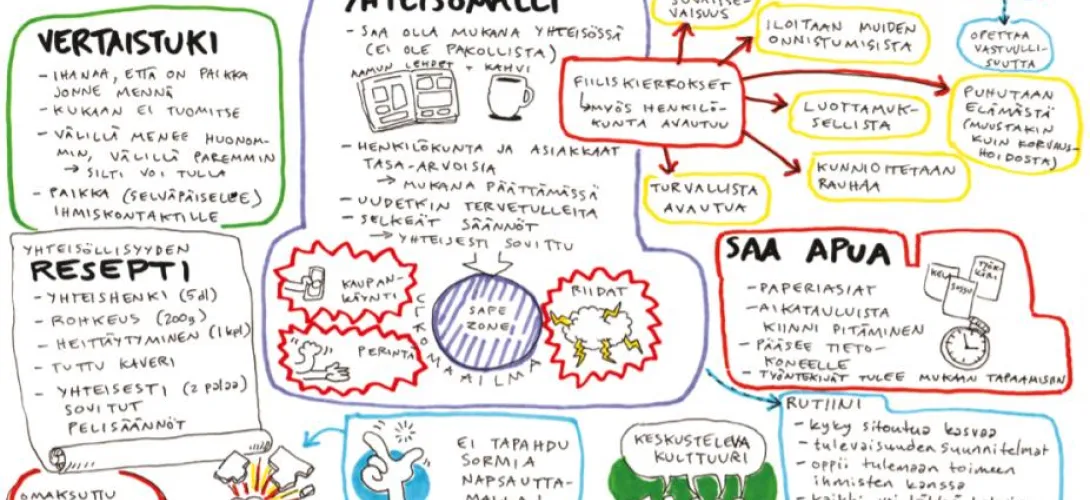 VERTAISTUKI
- IHANAA, ETTÄ ON PAIKKA
JONNE MENNÄ
- KUKAAN EI TUOMITSE
- VÄLILLÄ MENEE HUONOM-
MIN, VÄLILLÄ PAREMMIN
→ SILTI VOI TULLA
- PAIKKA (SELVÄPÄISELLE)
IHMISKONTAKTILLE
YHTEISÖLLISYYDEN
RESEPTI
- YHTEISHENKI (5dl)
- ROHKEUS (200g)
- HEITTÄYTYMINEN (1 kpl)
- TUTTU KAVERI
- YHTEISESTI (2 palaa)
SOVITUT
PELISÄÄNNÖT
OMAKSUTTU
YHTEISÖMALLI
- SAA OLLA MUKANA YHTEISÖSSÄ
(EI OLE PAKOLLISTA)
AAMUN LEHDET + KAHVI
- HENKILÖKUNTA JA ASIAKKAAT
TASA-ARVOISIA
→ MUKANA PÄÄTTÄMÄSSÄ
- UUDETKIN TERVETULLEITA
- SELKEÄT SÄÄNNÖT
→ YHTEISESTI SOVITTU
KAUPAN-
KÄYNTI
PERINTÄ
SAFE
ZONE
RIIDAT
ULKOMAAILMA
FIILISKIERROKSET
↳ MYÖS HENKILÖ-
KUNTA AVAUTUU
VAISUUS
ILOITAAN MUIDEN
ONNISTUMISISTA
LUOTTAMUK-
SELLISTA
KUNNIOITETAAN
RAUHAA
TURVALLISTA
AVAUTUA
OPETTAA
VASTUULLI-
SUUTTA
PUHUTAAN
ELÄMÄSTÄ
(MUUSTAKIN
KUIN KORVAUS-
HOIDOSTA)
SAA APUA
- PAPERIASIAT
- AIKATAULUISTA
KIINNI PITÄMINEN
- PÄÄSEE TIETO-
KONEELLE
- TYÖNTEKIJÄT TULEE MUKAAN TAPAAMISIIN
KELA
SOSSU
TYÖK-
KÄRI
EI TAPAHDU
SORMIA
NAPSAUTTA-
MALLA!
KESKUSTELEVA
KULTTUURI
RUTIINI
- kyky sitoutua kasvaa
- tulevaisuuden suunnitelmat
- oppii tulemaan toimeen
ihmisten kanssa